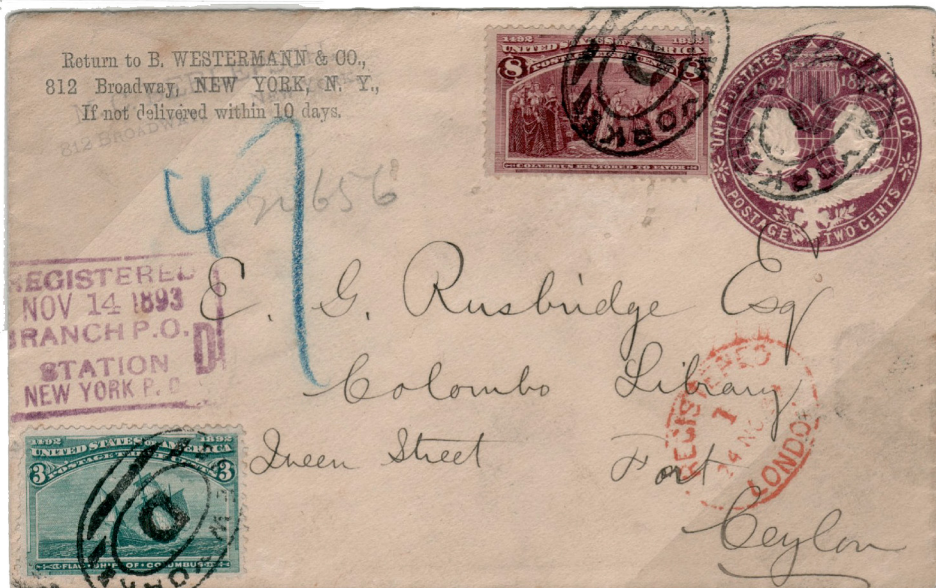 Return to B. WESTERMANN & CO.,
812 Broadway, NEW YORK, N. Y.,
If not delivered within 10 days.
812 BROADWAY
1492 1892
UNITED STATES OF AMERICA
8 POSTAGE EIGHT CENTS 8
COLUMBUS RESTORED TO FAVOR
NEW YORK
D
UNITED STATES OF AMERICA
1492 1892
POSTAGE TWO CENTS
47
656
REGISTERED
NOV 14 1893
BRANCH P.O.
STATION D
NEW YORK P. O.
E. G. Rusbridge Esq
Colombo Library
Queen Street Fort
Ceylon
REGISTERED
1
24 NO
LONDON
1492 1892
UNITED STATES OF AMERICA
3 POSTAGE THREE CENTS 3
FLAG SHIP OF COLUMBUS
D